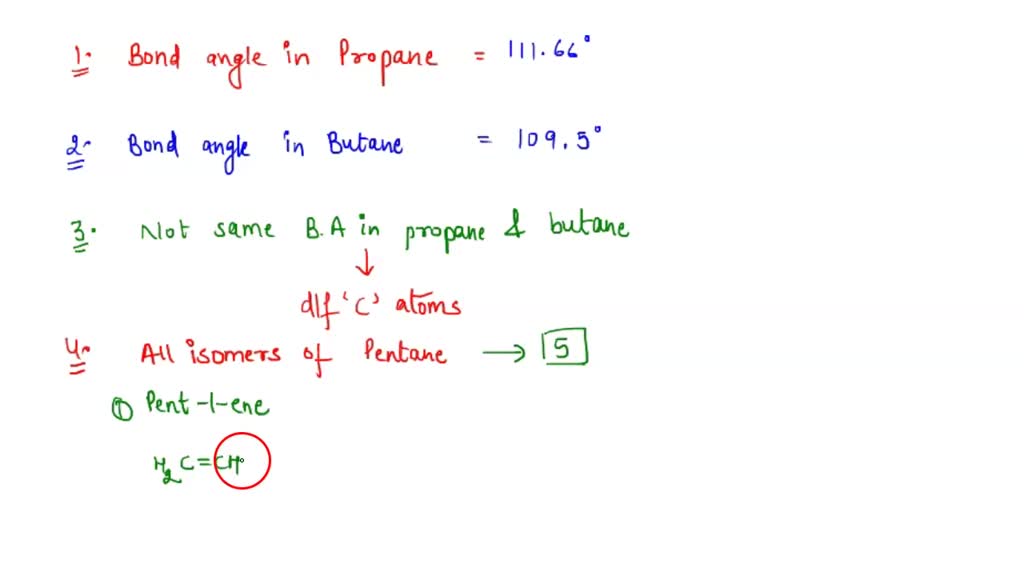 1. Bond angle in Propane = 111.66°
2. Bond angle in Butane = 109.5°
3. Not same B.A in propane & butane
↓
dlf 'C' atoms
4. All isomers of Pentane → 5
① Pent-1-ene
H₂C=CH